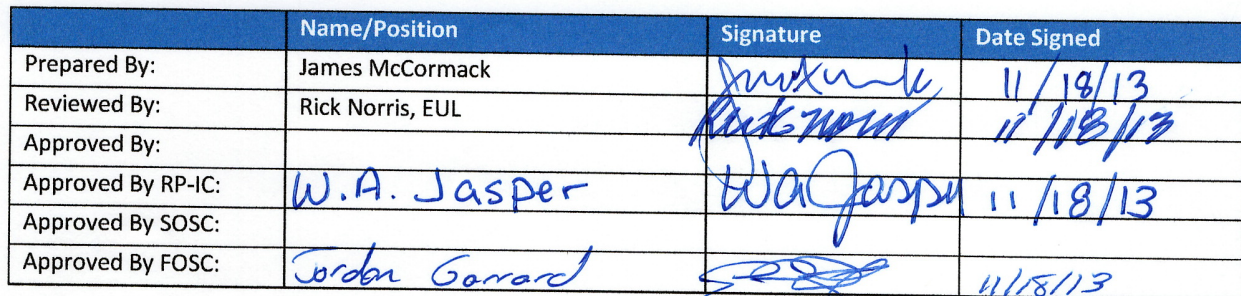 Name/Position Signature Date Signed
Prepared By: James McCormack 11/18/13
Reviewed By: Rick Norris, EUL Rick Norris 11/18/13
Approved By:
Approved By RP-IC: W.A. Jasper WA Jasper 11/18/13
Approved By SOSC:
Approved By FOSC: Jordan Garrard 11/18/13